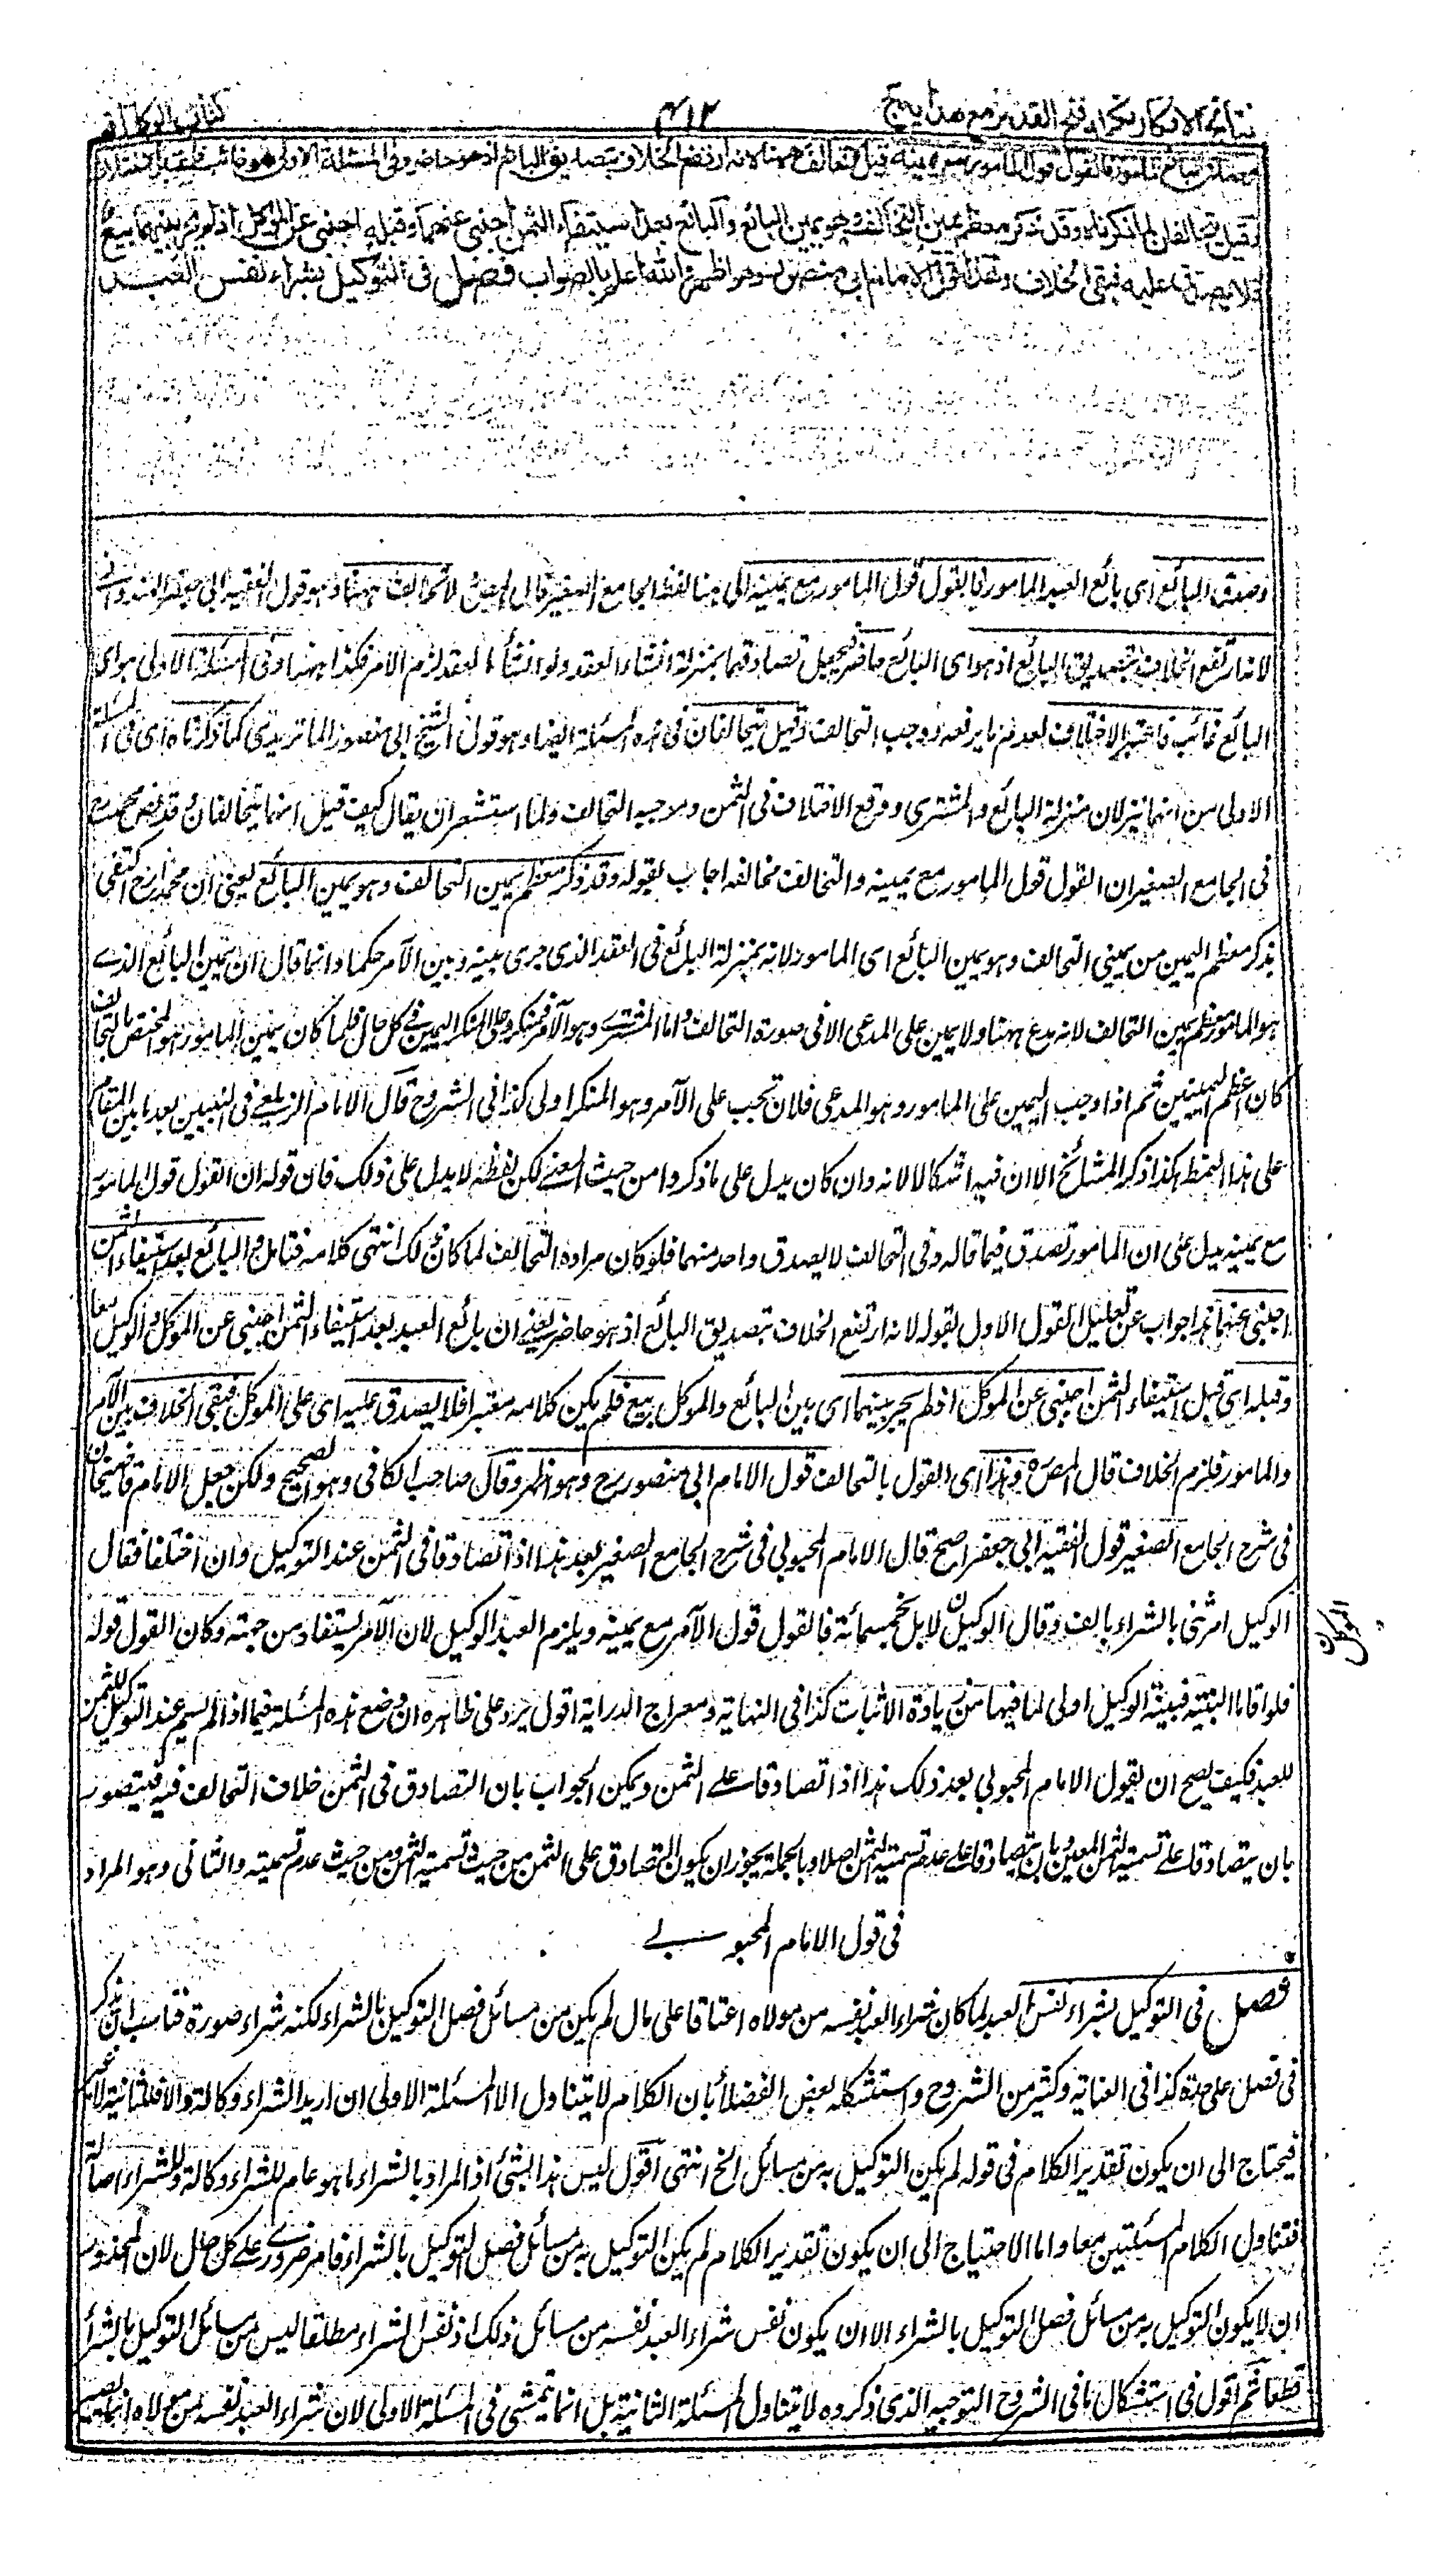 نتائج الافكار تكملہ فتح القدیر مع ہدایہ ج
۴۱۲
كتاب الوكالة
وصدق البائع المامور فالقول قول المامور مع يمينه قيل لا تحالف ههنا لانه ارتفع الخلاف بتصديق البائع اذ هو حاضر وفي المسئلة الاولى هو غائب فاعتبر الاختلاف
وقيل يتحالفان لما ذكرناه وقد ذكر معظم يمين التحالف وهو يمين البائع والبائع بعد استيفاء الثمن اجنبي عنهما وقبله اجنبي عن الموكل اذ لم يجر بينهما بيع
فلا يصدق عليه فبقي الخلاف وهذا قول الامام ابي منصور وهو اظهر والله اعلم بالصواب فصل في التوكيل بشراء نفس العبد
وصدق البائع اى بائع العبد المامور فالقول قول المامور مع يمينه الى هنا لفظ الجامع الصغير قال المص لا تحالف ههنا وهو قول الفقيه ابي جعفر الهندواني
لانه ارتفع الخلاف بتصديق البائع اذ هو اى البائع حاضر فيجعل تصادقهما بمنزلة انشاء العقد ولو انشأ العقد لزم الامر فكذا ههنا وفي المسئلة الاولى هو اى
البائع غائب فاعتبر الاختلاف لعدم ما يرفعه ووجب التحالف وقيل يتحالفان في هذه المسئلة ايضا وهو قول الشيخ ابي منصور الماتريدي كما ذكرناه اى في المسئلة
الاولى من انهما ينزلان منزلة البائع والمشتري ووقع الاختلاف في الثمن وموجبه التحالف ولما استشعر ان يقال كيف قيل انهما يتحالفان وقد نص محمد رح
في الجامع الصغير ان القول قول المامور مع يمينه والتحالف مخالفه اجاب بقوله وقد ذكر معظم يمين التحالف وهو يمين البائع يعني ان محمدا رح اكتفى
بذكر معظم اليمين من يميني التحالف وهو يمين البائع اى المامور لانه بمنزلة البائع في العقد الذي جرى بينه وبين الآمر حكما وانما قال ان يمين البائع الذي
هو المامور معظم يمين التحالف لانه مدع ههنا ولا يمين على المدعي الا في صورة التحالف واما المشتري وهو الآمر فمنكر وعلى المنكر اليمين في كل حال فلما كان يمين المامور هو المختص بالتحالف
كان اعظم اليمينين ثم اذا وجب اليمين على المامور وهو المدعي فلان تجب على الآمر وهو المنكر اولى كذا في الشروح قال الامام الزيلعي في التبيين بعد ما بين المقام
على هذا النمط هكذا ذكر المشائخ الا ان فيه اشكالا لانه وان كان يدل على ما ذكروا من حيث المعنى لكن لفظه لا يدل على ذلك فان قوله ان القول قول المامور
مع يمينه يدل على ان المامور تصدق فيما قاله وفي التحالف لا يصدق واحد منهما فلو كان مراده التحالف لما كان كذلك انتهى كلامه فتامل والبائع بعد استيفاء الثمن
اجنبي عنهما هذا جواب عن تعليل القول الاول بقوله لانه ارتفع الخلاف بتصديق البائع اذ هو حاضر يعني ان بائع العبد بعد استيفاء الثمن اجنبي عن الموكل والوكيل معا
وقبله اى قبل استيفاء الثمن اجنبي عن الموكل اذ لم يجر بينهما اى بين البائع والموكل بيع فلم يكن كلامه معتبرا فلا يصدق عليه اى على الموكل فبقي الخلاف بين الآمر
والمامور فلزم الخلاف قال المص رہ وهذا اى القول بالتحالف قول الامام ابي منصور رح وهو اظهر وقال صاحب الكافي وهو الصحيح ولكن جعل الامام قاضيخان
في شرح الجامع الصغير قول الفقيه ابي جعفر اصح قال الامام المحبوبي في شرح الجامع الصغير بعد هذا اذا تصادقا في الثمن عند التوكيل وان اختلفا فقال
الوكيل امرتني بالشراء بالف وقال الوكيل لا بل بخمسمائة فالقول قول الآمر مع يمينه ويلزم العبد الوكيل لان الآمر يستفاد من جهته وكان القول قوله
فلو اقاما البينة فبينة الوكيل اولى لما فيها من زيادة الاثبات كذا في النهاية ومعراج الدراية اقول يرد على ظاهره ان وضع هذه المسئلة فيما اذا لم يسم عند التوكيل ثمن
للعبد فكيف يصح ان يقول الامام المحبوبي بعد ذلك هذا اذا تصادقا على الثمن ويمكن الجواب بان التصادق في الثمن خلاف التحالف فيه فيتصور
بان يتصادقا على تسمية الثمن المعين وبان يتصادقا على عدم تسمية الثمن اصلا وبالجملة يجوز ان يكون التصادق على الثمن من حيث تسمية الثمن ومن حيث عدم تسميته والثاني وهو المراد
في قول الامام المحبوبي
فصل في التوكيل بشراء نفس العبد لما كان شراء العبد نفسه من مولاه اعتاقا على مال لم يكن من مسائل فصل التوكيل بالشراء لكنه شراء صورة فناسب ان يذكر
في فصل على حدة كذا في العناية وكثير من الشروح واستشكله بعض الفضلاء بان الكلام لا يتناول الا المسئلة الاولى ان اريد الشراء وكالة والا فللثانية لا غير
فيحتاج الى ان يكون تقدير الكلام في قوله لم يكن التوكيل به من مسائل الخ انتهى اقول ليس هذا بشئ اذ المراد بالشراء ما هو عام للشراء وكالة وللشراء اصالة
فتناول الكلام المسئلتين معا واما الاحتياج الى ان يكون تقدير الكلام لم يكن التوكيل به من مسائل فصل التوكيل بالشراء فامر ضروري على كل حال لان المحذور
ان لا يكون التوكيل به من مسائل فصل التوكيل بالشراء الا ان يكون نفس شراء العبد نفسه من مسائل ذلك اذ نفس الشراء مطلقا ليس من مسائل التوكيل بالشراء
قطعا ثم اقول في استشكال ما في الشروح التوجيه الذي ذكروه لا يتناول المسئلة الثانية بل انما يتمشى في المسئلة الاولى لان شراء العبد نفسه من مولاه انما يصير